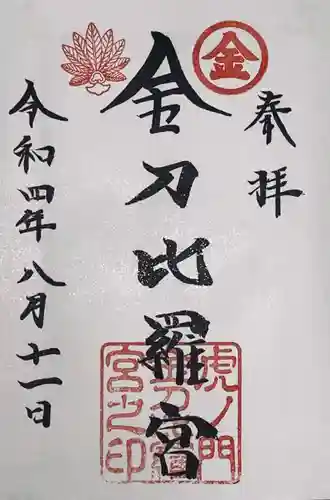 金
奉拝
金刀比羅宮
虎ノ門
宮之印
令和四年八月十一日